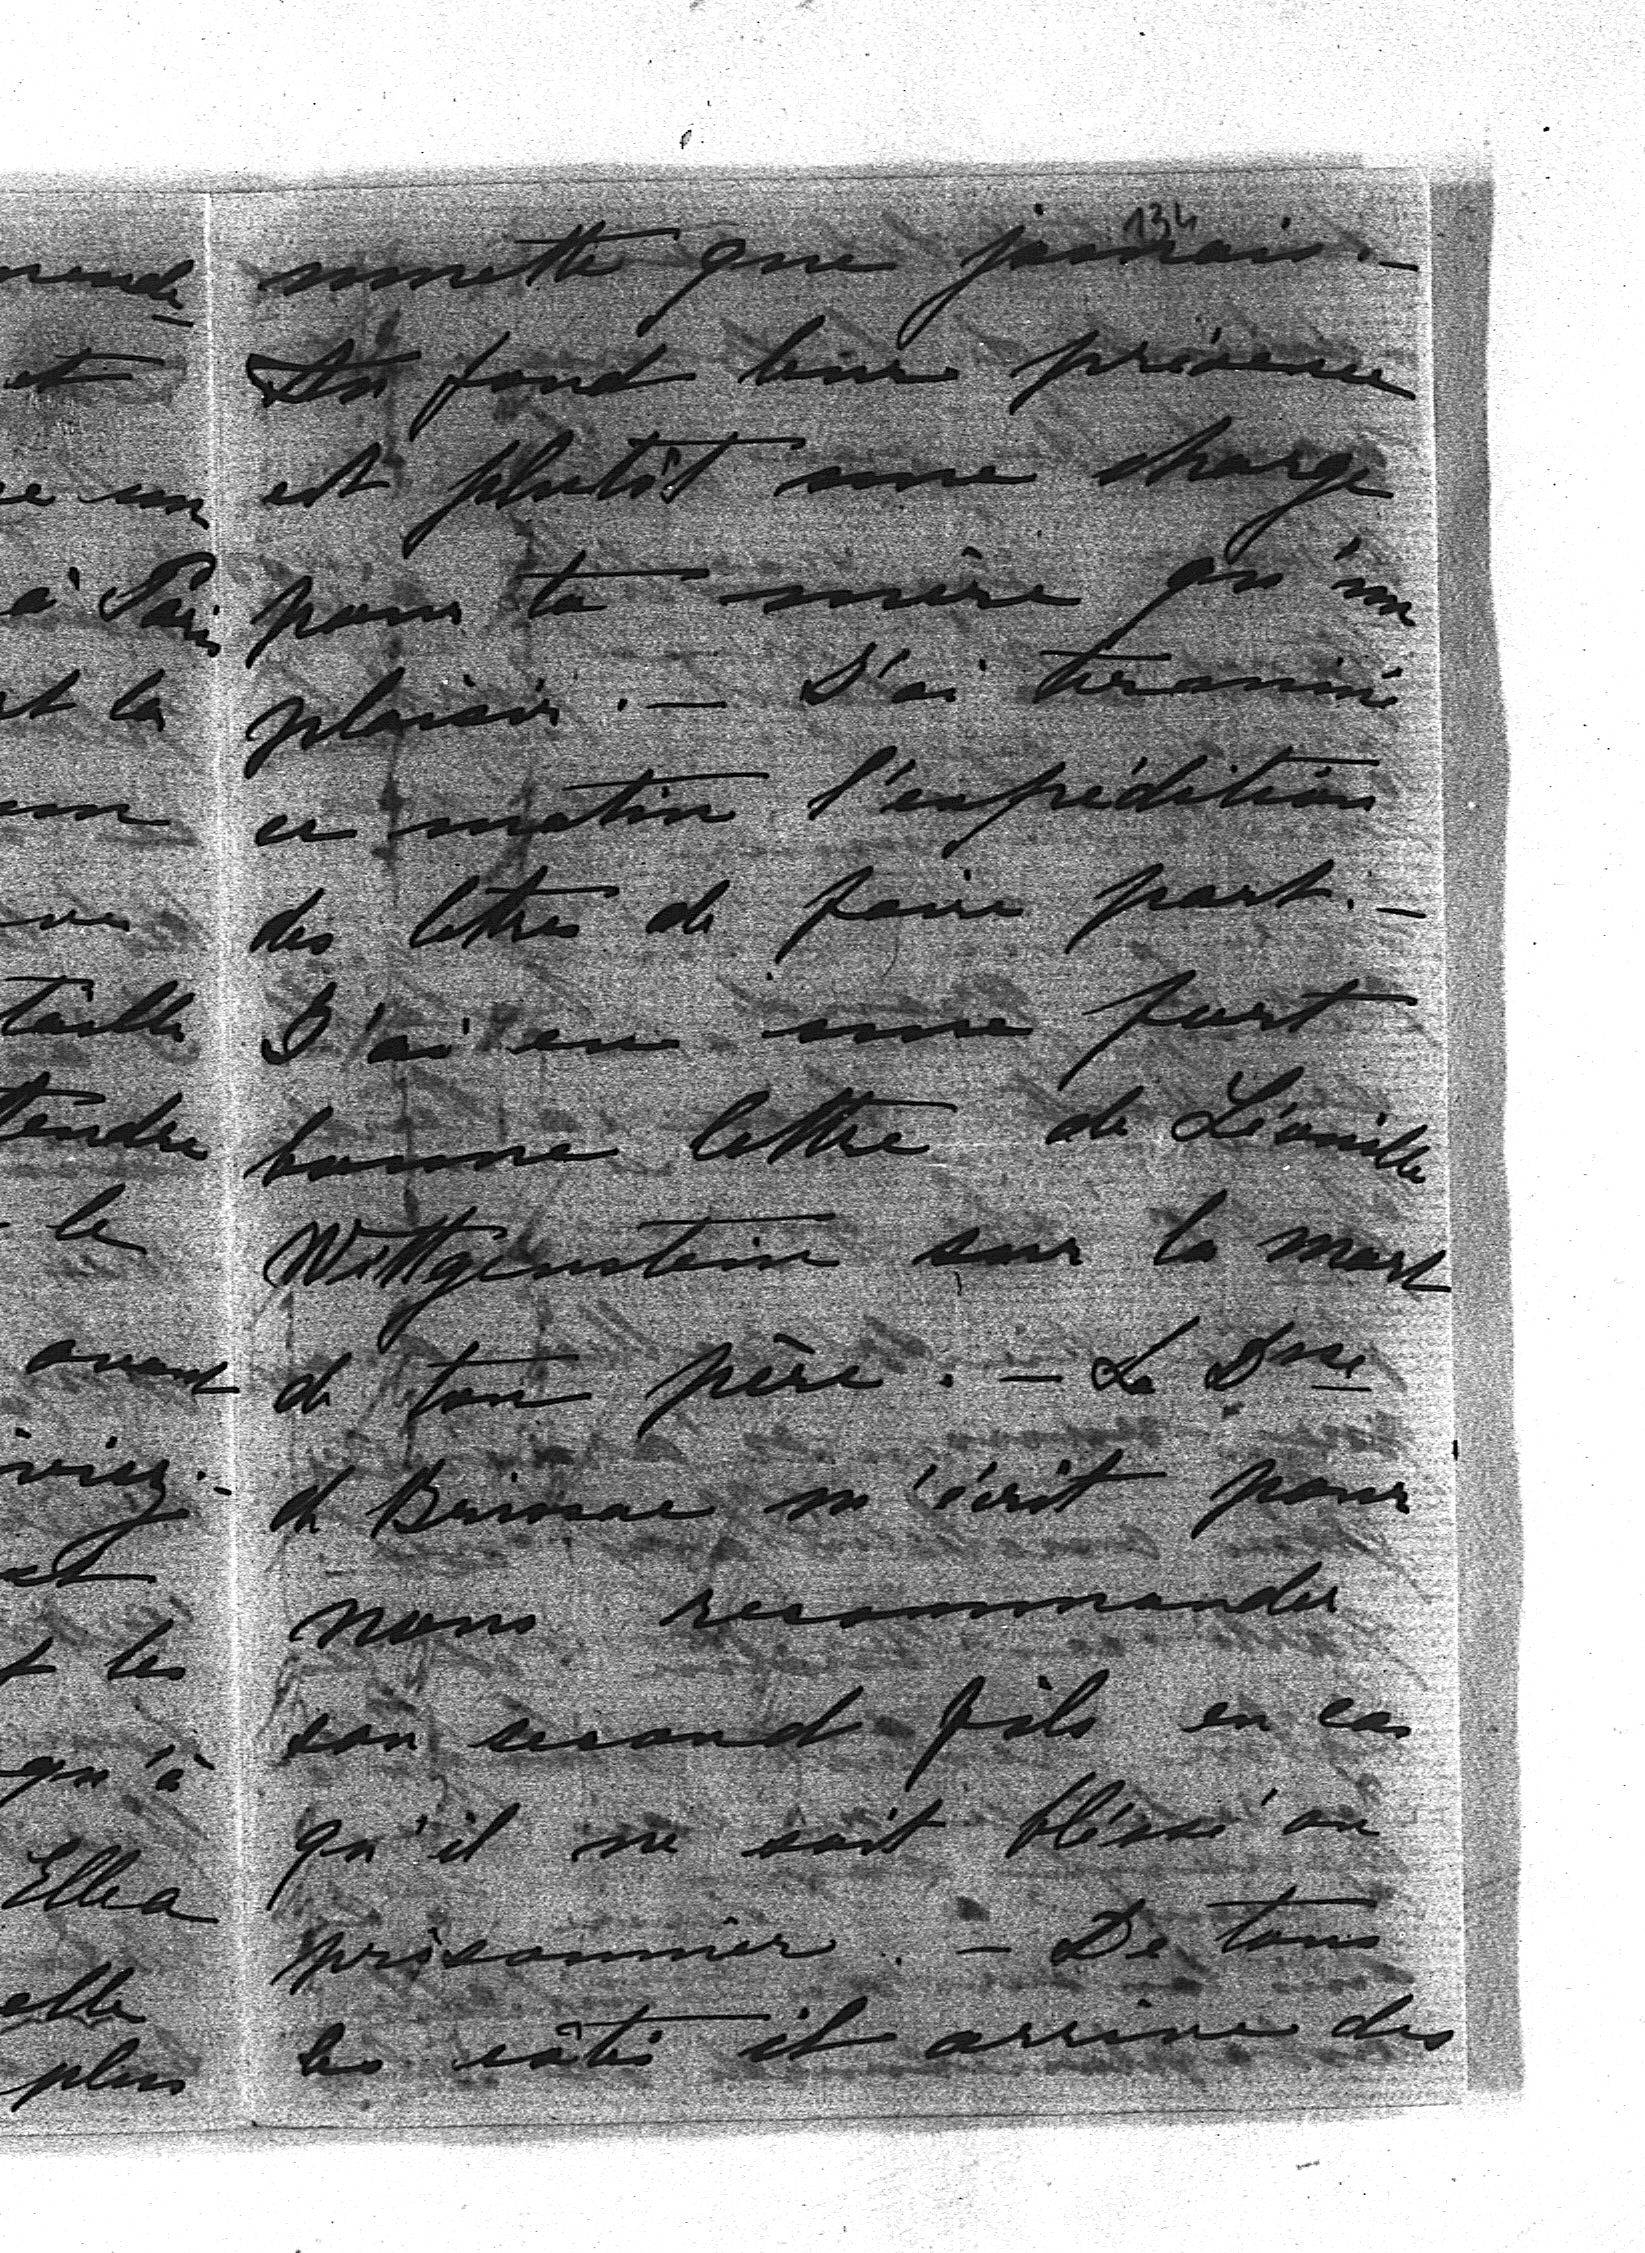 134
mette que jamais. –
Au fond leur présence
est plutôt une charge
pour ta mère qu'un
plaisir. – J'ai terminé
ce matin l'expédition
des lettres de faire part. –
J'ai eu une fort
bonne lettre de Léonille
Wittgenstein sur la mort
de ton père. – La Dsse
de Brissac m'écrit pour
nous recommander
son second fils en cas
qu'il ne soit bléssé ou
prisonnier. – De tous
les côtés il arrive des
et
un
à Paris
et la
un
taille
tendre
le
avant
et les
qu'à
Elle a
elle
plus